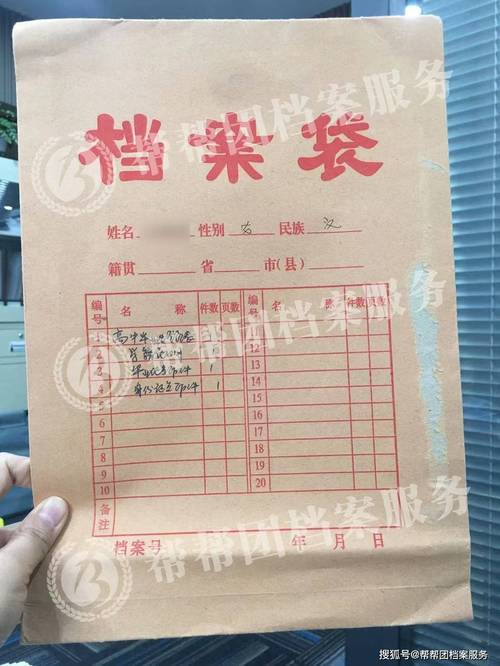 档案袋
姓名 性别 女 民族 汉
籍贯 省 市(县)
编号 名称 件数 页数 编号 名称 件数 页数
1 高中毕业 11
2 12
3 毕业证复印件 1 13
4 身份证复印件 1 14
5 15
6 16
7 17
8 18
9 19
10 20
备注
档案号 年 月 日
帮帮团档案服务
帮帮团档案服务
搜狐号@帮帮团档案服务